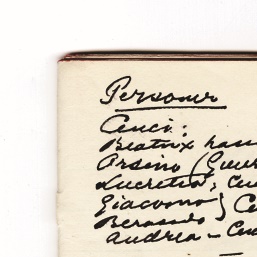 Personer
Cenci:
Beatrix han
Orsino (Guer
Lucretia, Cen
Giacomo } Ce
Bernardo
Andrea – Cen